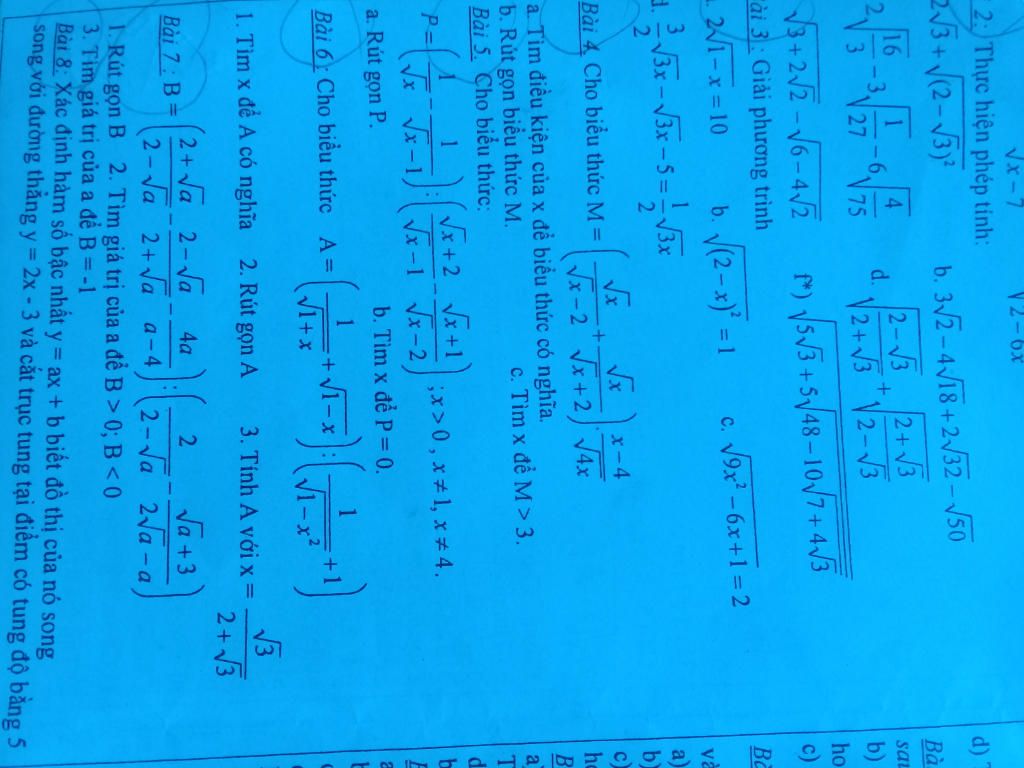 √x − 7    √2 − 6x
2: Thực hiện phép tính:
2√3 + √((2 − √3)²)    b. 3√2 − 4√18 + 2√32 − √50
2√(16/3) − 3√(1/27) − 6√(4/75)    d. √((2 − √3)/(2 + √3)) + √((2 + √3)/(2 − √3))
√(3 + 2√2) − √(6 − 4√2)    f*) √(5√3 + 5√(48 − 10√(7 + 4√3)))
ài 3: Giải phương trình
. 2√(1 − x) = 10    b. √((2 − x)²) = 1    c. √(9x² − 6x + 1) = 2
d. 3/2 √3x − √3x − 5 = 1/2 √3x
Bài 4. Cho biểu thức M = (√x/(√x − 2) + √x/(√x + 2)) . (x − 4)/√4x
a. Tìm điều kiện của x để biểu thức có nghĩa.
b. Rút gọn biểu thức M.    c. Tìm x để M > 3.
Bài 5. Cho biểu thức:
P = (1/√x − 1/(√x − 1)) : ((√x + 2)/(√x − 1) − (√x + 1)/(√x − 2)) ; x > 0 , x ≠ 1, x ≠ 4 .
a. Rút gọn P.    b. Tìm x để P = 0.
Bài 6: Cho biểu thức A = (1/√(1 + x) + √(1 − x)) : (1/√(1 − x²) + 1)
1. Tìm x để A có nghĩa    2. Rút gọn A    3. Tính A với x = √3/(2 + √3)
Bài 7 : B = ((2 + √a)/(2 − √a) − (2 − √a)/(2 + √a) − 4a/(a − 4)) : (2/(2 − √a) − (√a + 3)/(2√a − a))
1. Rút gọn B    2. Tìm giá trị của a để B > 0; B < 0
3. Tìm giá trị của a để B = -1
Bài 8: Xác định hàm số bậc nhất y = ax + b biết đồ thị của nó song
song với đường thẳng y = 2x - 3 và cắt trục tung tại điểm có tung độ bằng 5
d)
Bà
sau
b)
ho
c)
Bà
và
a)
b)
c)